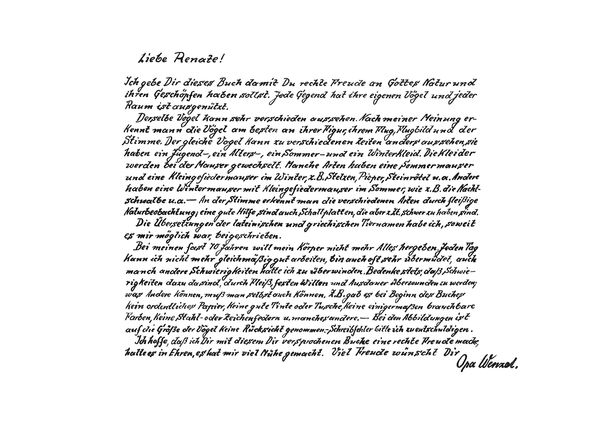 Liebe Renate!
Ich gebe Dir dieses Buch damit Du rechte Freude an Gottes Natur und
ihren Geschöpfen haben sollst. Jede Gegend hat ihre eigenen Vögel und jeder
Raum ist ausgenützt.
Derselbe Vogel kann sehr verschieden aussehen. Nach meiner Meinung er-
kennt mann die Vögel am besten an ihrer Figur, ihrem Flug, Flugbild und der
Stimme. Der gleiche Vogel kann zu verschiedenen Zeiten anders aussehen, sie
haben ein Jugend-, ein Alters-, ein Sommer- und ein Winterkleid. Die Kleider
werden bei der Mauser gewechselt. Manche Arten haben eine Sommermauser
und eine Kleingefiedermauser im Winter, z.B. Stelzen, Pieper, Steinrötel u.a. Andere
haben eine Wintermauser mit Kleingefiedermauser im Sommer, wie z.B. die Nacht-
schwalbe u.a. — An der Stimme erkennt man die verschiedenen Arten durch fleißige
Naturbeobachtung, eine gute Hilfe sind auch Schallplatten, die aber z.Zt. schwer zu haben sind.
Die Übersetzungen der lateinischen und griechischen Tiernamen habe ich, soweit
es mir möglich war, beigeschrieben.
Bei meinen fast 70 Jahren will mein Körper nicht mehr Alles hergeben. Jeden Tag
kann ich nicht mehr gleichmäßig gut arbeiten, bin auch oft sehr übermüdet, auch
manch andere Schwierigkeiten hatte ich zu überwinden. Bedenke stets, daß Schwie-
rigkeiten dazu da sind, durch Fleiß, festen Willen und Ausdauer überwunden zu werden,
was Andere können, muß man selbst auch können. Z.B. gab es bei Beginn des Buches
kein ordentliches Papier, keine gute Tinte oder Tusche, keine einigermaßen brauchbare
Farben, keine Stahl- oder Zeichenfedern u. manches andere. — Bei den Abbildungen ist
auf die Größe der Vögel keine Rücksicht genommen. Schreibfehler bitte ich zu entschuldigen.
Ich hoffe, daß ich Dir mit diesem Dir versprochenen Buche eine rechte Freude mache,
halte es in Ehren, es hat mir viel Mühe gemacht. Viel Freude wünscht Dir
Opa Wenzel.